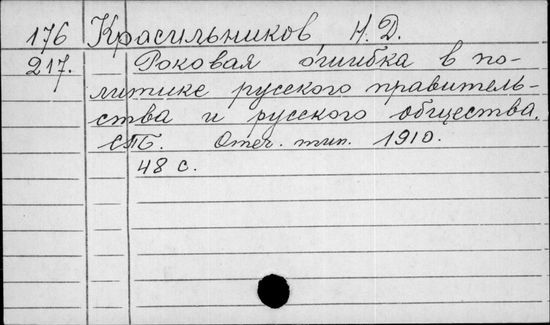 176 Красильников, Н. Д.
217. Роковая ошибка в по-
литике русского правитель-
ства и русского общества.
СПБ. Отеч. тип. 1910.
48 с.